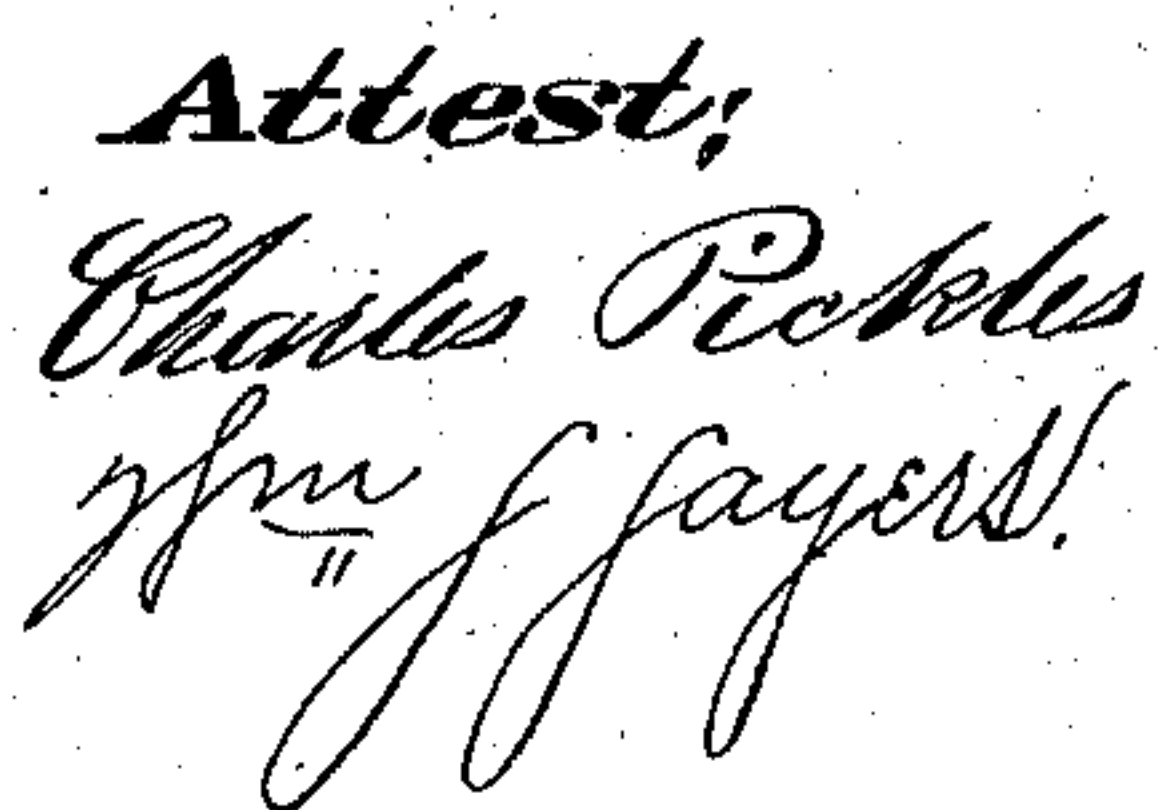 Attest;
Charles Pickles
Wm J Sayers.